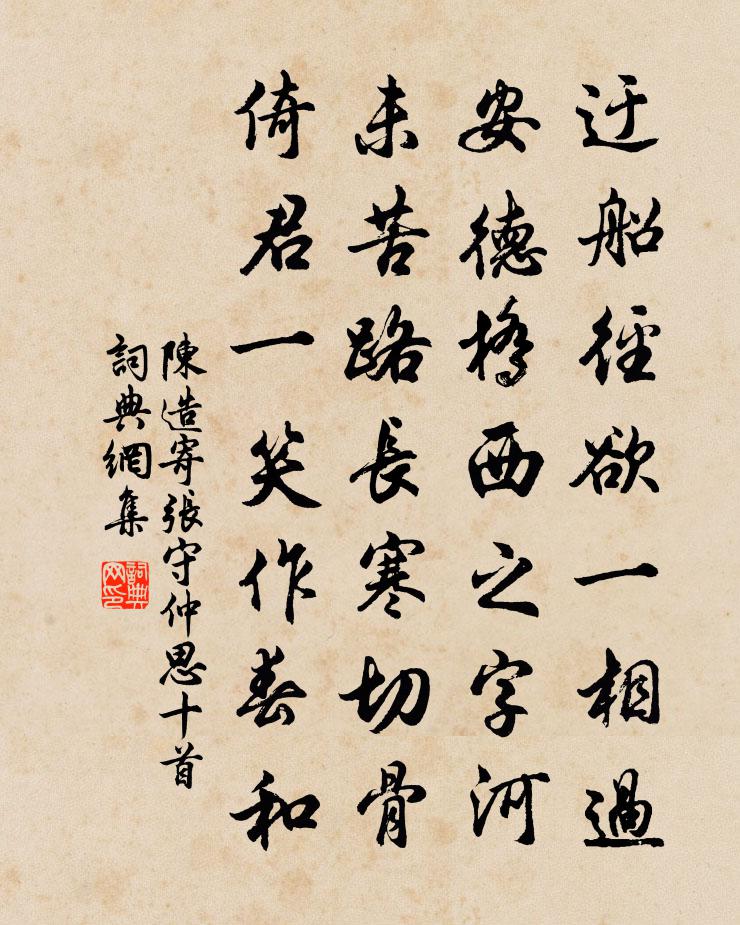 迂船徑欲一相過
安德橋西之字河
未苦路長寒切骨
倚君一笑作春和
陳造寄張守仲思十首
詞典網集
詞典网印